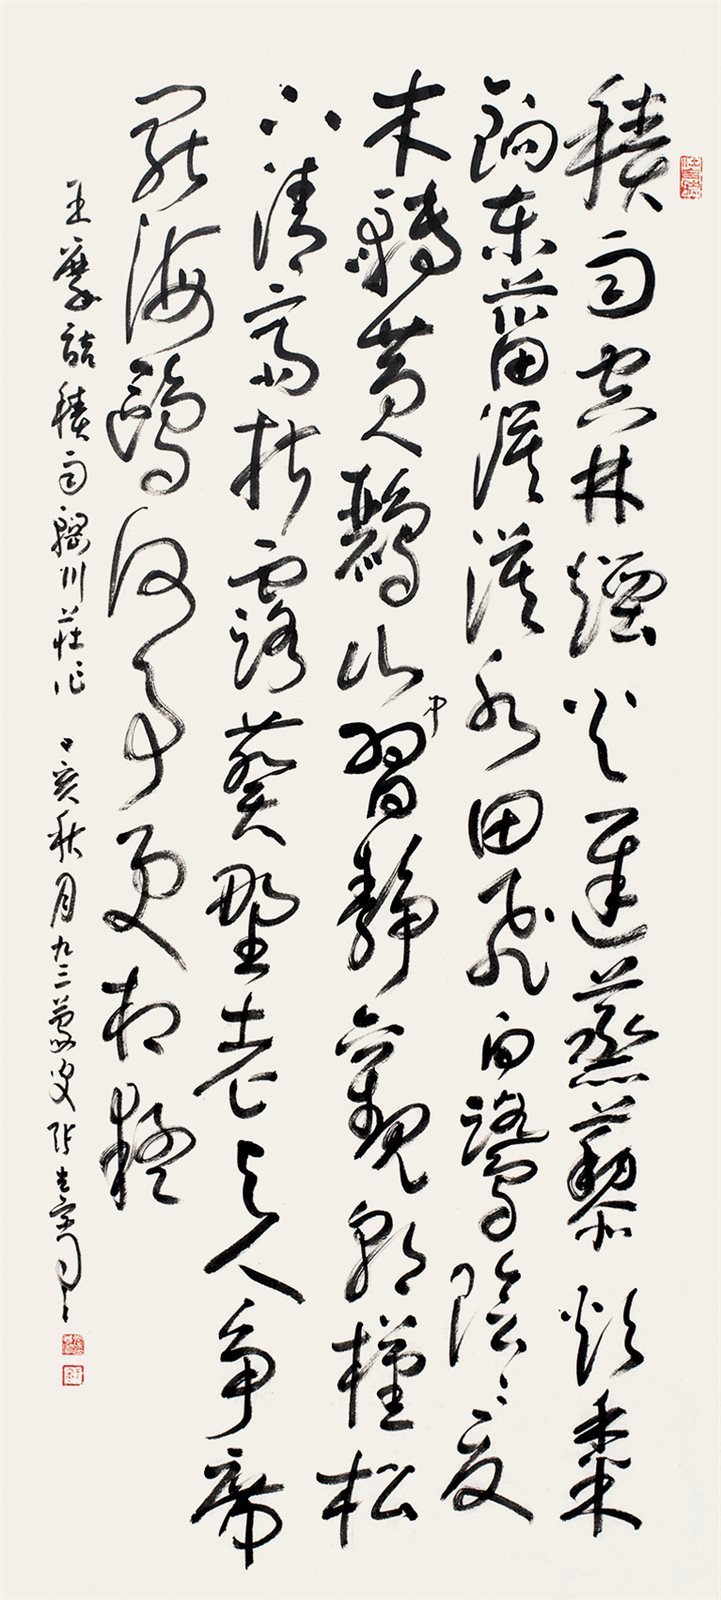 積雨空林煙火遲蒸藜炊黍
餉東菑漠漠水田飛白鷺陰陰夏
木囀黃鸝山中習靜觀朝槿松
下清齋折露葵野老與人爭席
罷海鷗何事更相疑
王摩詰積雨輞川莊作 丁亥秋月九二叟張